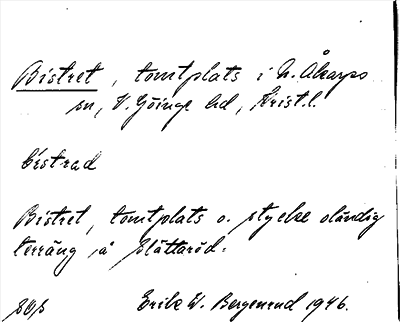 Bistret, tomtplats i N. Åkarps
sn, V. Göinge hd, Krist.l.
bistrad
Bistret, tomtplats o. stycke oländig
terräng på Slättaröd.
Erik W. Bergenrud 1946.